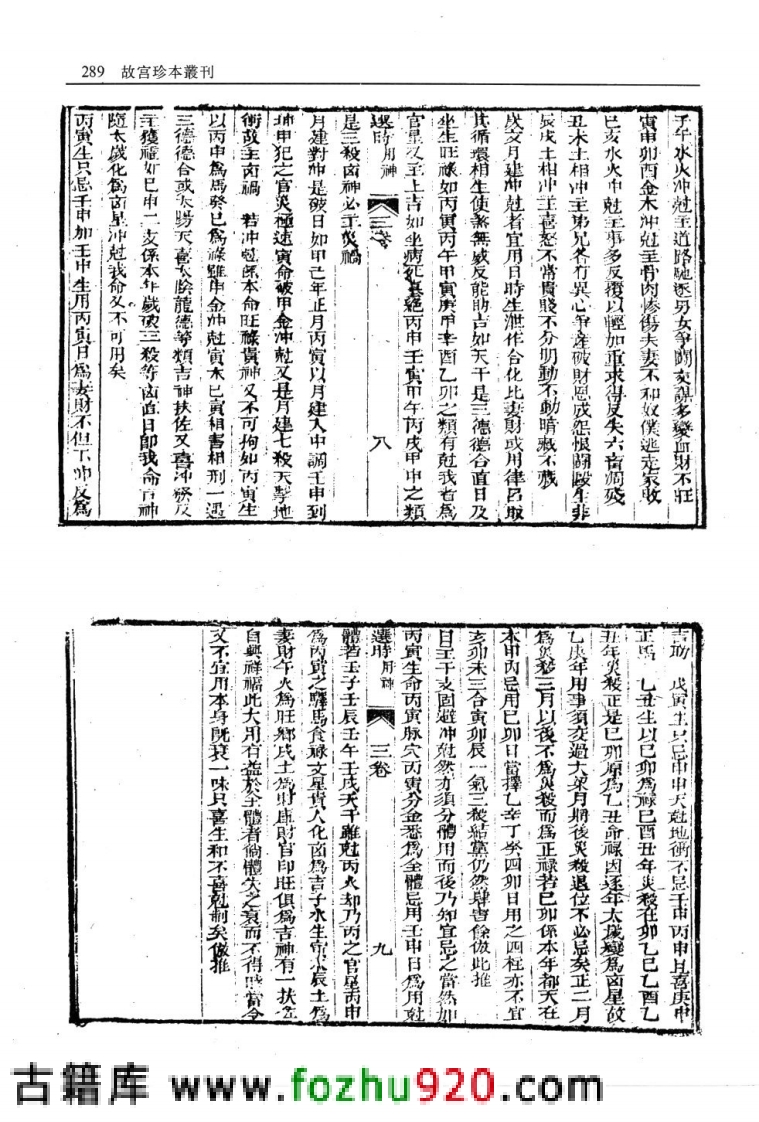 289 故宮珍本叢刊
子午水火冲尅主道路馳逐男女爭鬪交謀多變血財不旺
寅申卯酉金木冲尅主骨肉慘傷夫妻不和奴僕逃走家敗
巳亥水火冲尅主事多反覆以輕加重求得反失六畜凋殘
丑未土相冲主弟兄各有異心爭產破財恩成怨恨鬪毆生非
辰戌土相冲主喜怒不常貴賤不分明動不動暗戕不戕
成文月建冲尅者宜用日時生泄作合化比妻財或用律呂取
其循環相生使煞無威反能助吉如天干是三德德合直日及
坐生旺祿如丙寅丙午甲寅庚申辛酉乙卯之類有尅我者爲
官星又主上吉如坐病死墓絕丙申壬寅甲午丙戌甲申之類
選時用神 三卷 八
是三殺凶神必主災禍
月建對冲是破日如甲己年正月丙寅以月建入中調壬申到
坤申犯之官災極速寅命破甲金冲尅又是月建七殺天擊地
衝故主凶禍 若冲尅係本命旺祿貴神又不可拘如丙寅生
以丙申爲馬癸巳爲祿雖申金冲尅寅木巳寅相害相刑一遇
三德德合或太陽天喜太陰龍德等類吉神扶佐又喜冲務反
主獲福如巳申二支係本年歲破三殺等凶直日卽我命吉神
隨太歲化爲凶星沖尅我命又不可用矣
丙寅生只忌壬申加壬申生用丙寅日爲妻財不但不冲反爲
吉助 戊寅生只忌甲申天尅地衝不忌壬申丙申且喜庚申
正馬 乙丑生以己卯爲祿巳酉丑年災殺在卯乙巳乙酉乙
丑年災殺正是己卯原爲乙丑命祿因逐年太歲變爲凶星故
乙庚年用事須交過大梁月期後災殺退位不必忌矣正二月
爲災殺三月以後不爲災殺而爲正祿若己卯係本年都天在
本甲丙忌用己卯日當擇乙辛丁癸四卯日用之四柱亦不宜
亥卯未三合寅卯辰一氣三殺結黨仍然肆害餘倣此推
日主干支固避冲尅然亦須分體用而後乃知宜忌之當然如
丙寅生命丙寅脉穴丙寅分金悉爲全體忌用壬申日爲用尅
選時用神 三卷 九
體若壬子壬辰壬午壬戌天干雖尅丙火却乃丙之官星丙申
爲丙寅之驛馬食祿文星貴人化凶爲吉子水生寅木辰土爲
妻財午火爲旺鄉戌土爲財庫財官印旺俱爲吉神有一扶㐫
自興祥福此大用有益於全體者倘體失之衰而不得時當令
又不宜用本身旣衰一味只喜生和不喜尅制矣倣推
古籍库 www.fozhu920.com